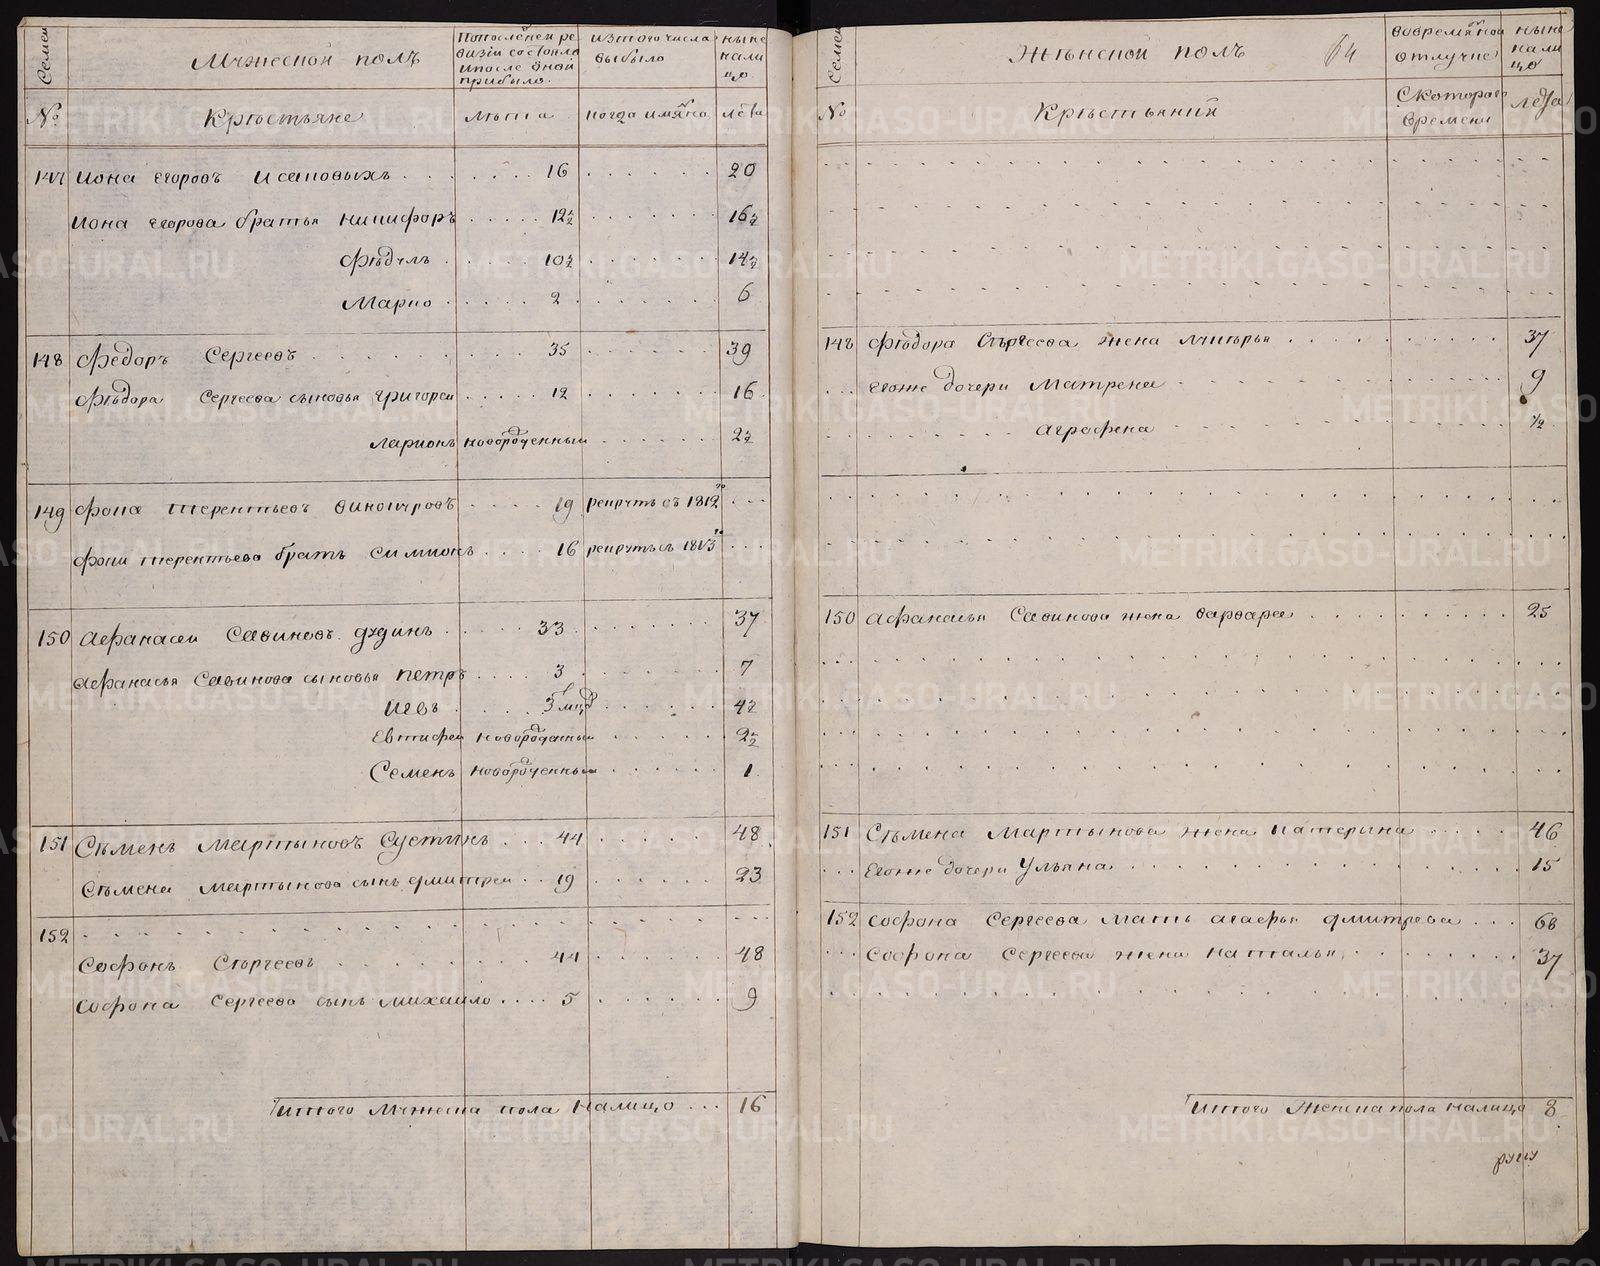 Семеи
Мужеской полъ
Попоследней ре
визiи состояло
ипосле оной
прибыло.
изтого числа
выбыло
ныне
нали
цо
№
Крестьяне
лета
когда имянно
лета
147 Иона Егоровъ Исаковыхъ 16 20
Иона Егорова братья Никифоръ 12½ 16½
Федулъ 10½ 14½
Марко 2 6
148 Федоръ Сергеевъ 35 39
Федора Сергеева сыновья Григореи 12 16
Ларионъ новорожденныи 2½
149 Фока Терентьевъ Винокуровъ 19 рекрутъ въ 1812го
Фоки Терентьева братъ Симионъ 16 рекрутъ въ 1813го
150 Афанасеи Савиновъ Дудинъ 33 37
Афанасья Савинова сыновья Петръ 3 7
Иевъ 3 мцд 4½
Евтифеи новорожденныи 2½
Семенъ новорожденныи 1
151 Семенъ Мартыновъ Сустинъ 44 48
Семена Мартынова сынъ Дмитреи 19 23
152
Софонъ Сергеевъ 44 48
Софона Сергеева сынъ Михаило 5 9
Итого Мужеска пола налицо 16
Семеи
Женской полъ 64
вовремянной
отлучке
ныне
нали
цо
№
Крестьянки
Скоторого
времени
лета
148 Федора Сергеева жена Лукерья 37
Егоже дочери Матрена 9
Аграфена ½
150 Афанасья Савинова жена Варвара 25
151 Семена Мартынова жена Катерина 46
Егоже дочери Ульяна 15
152 Софона Сергеева мать Агафья Дмитрева 68
Софона Сергеева жена Наталья 37
Итого Женска пола налицо 8
METRIKI.GASO-URAL.RU